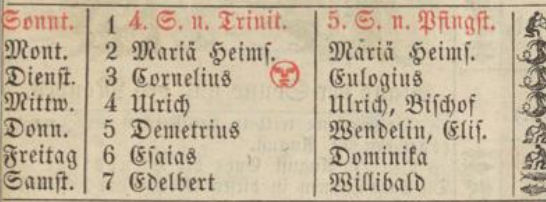 Sonnt. 1 4. S. n. Trinit. 5. S. n. Pfingst.
Mont. 2 Mariä Heims. Mariä Heims.
Dienst. 3 Cornelius Eulogius
Mittw. 4 Ulrich Ulrich, Bischof
Donn. 5 Demetrius Wendelin, Elis.
Freitag 6 Esaias Dominika
Samst. 7 Edelbert Willibald